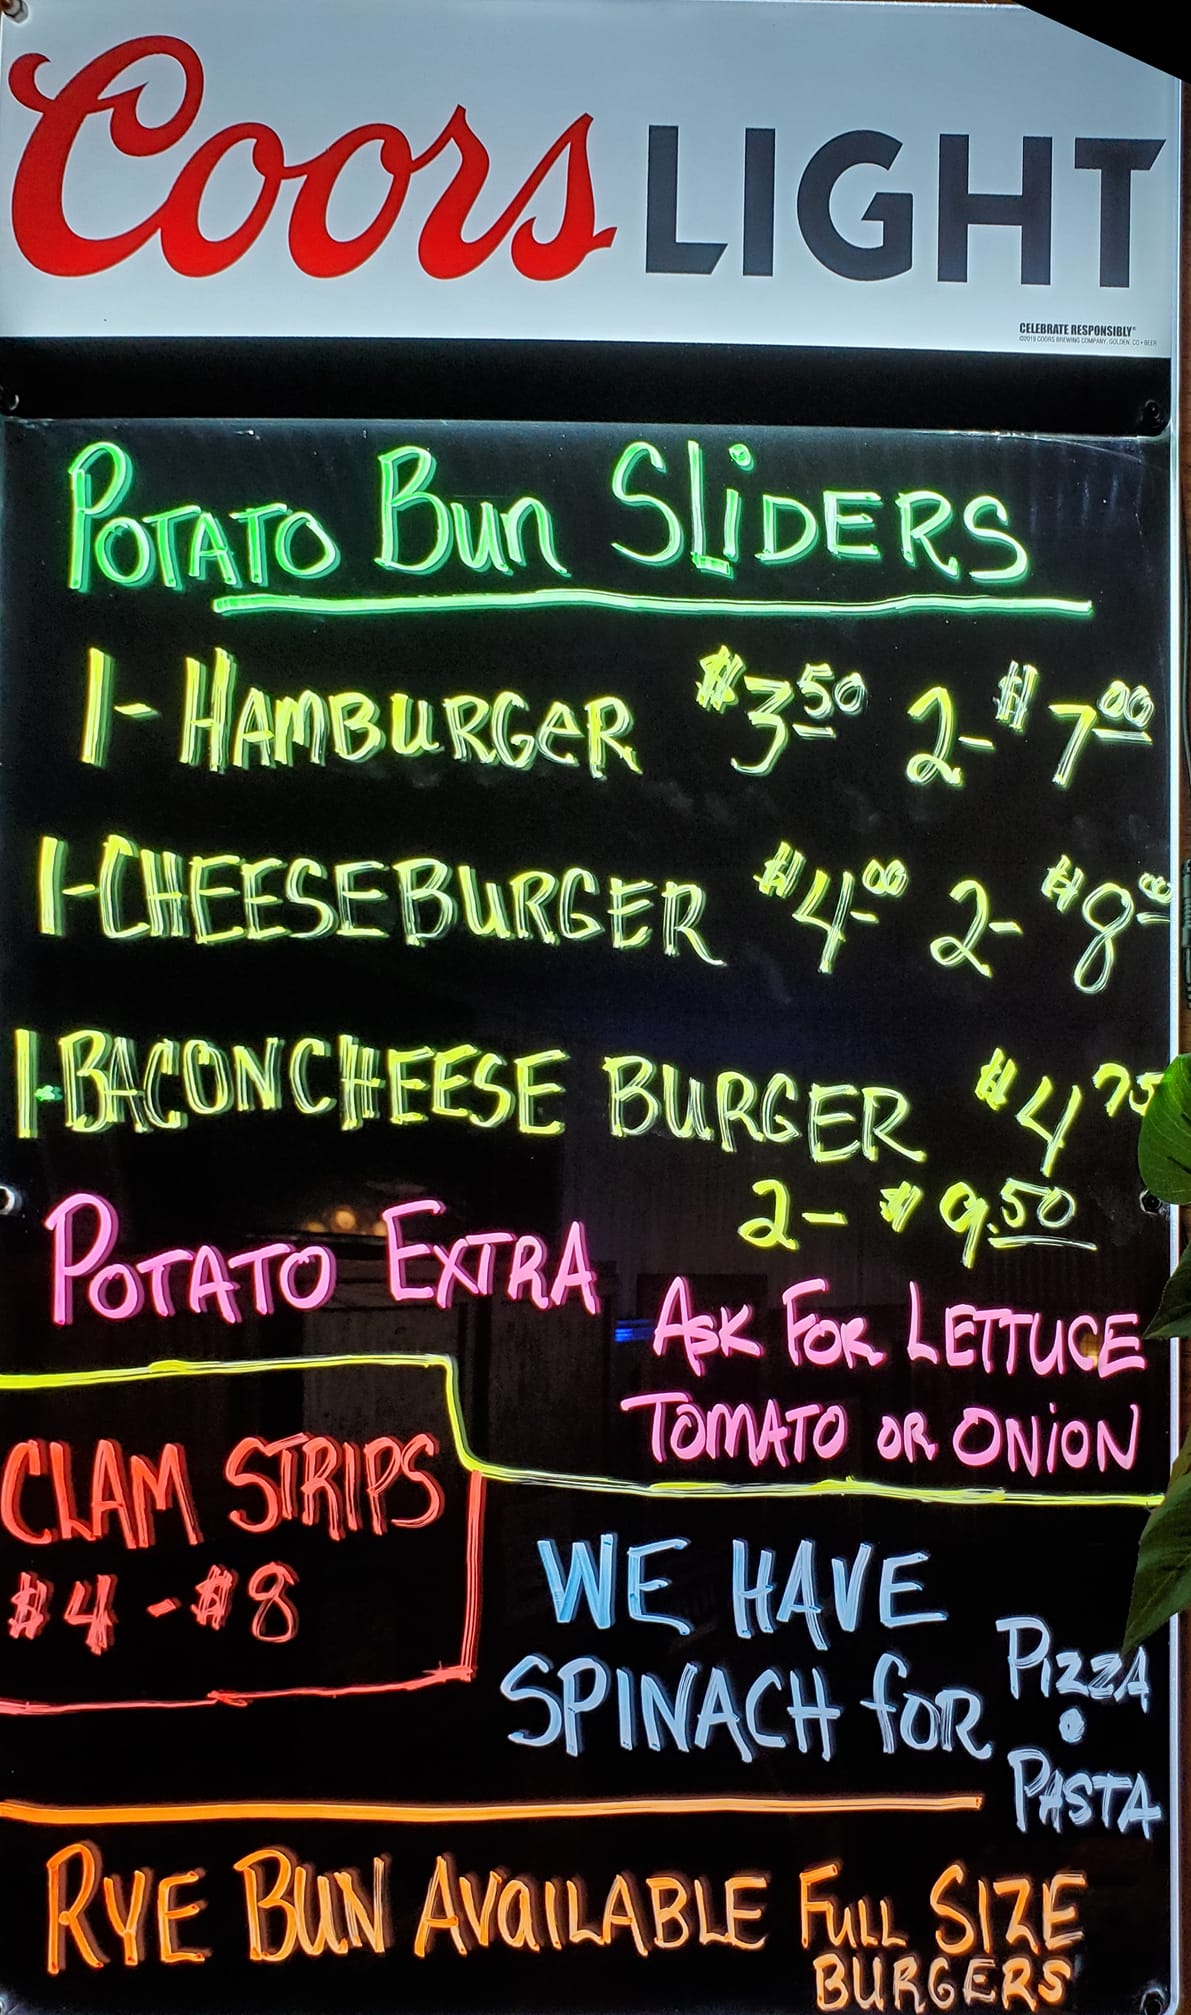 Coors LIGHT
CELEBRATE RESPONSIBLY®
©2019 COORS BREWING COMPANY, GOLDEN, CO • BEER
POTATO BUN SLIDERS
1- HAMBURGER $3.50 2- $7.00
1- CHEESEBURGER $4.00 2- $8.00
1- BACON CHEESE BURGER $4.75
2- $9.50
POTATO EXTRA
ASK FOR LETTUCE
TOMATO OR ONION
CLAM STRIPS
$4 - $8
WE HAVE
SPINACH FOR
PIZZA
•
PASTA
RYE BUN AVAILABLE FULL SIZE
BURGERS